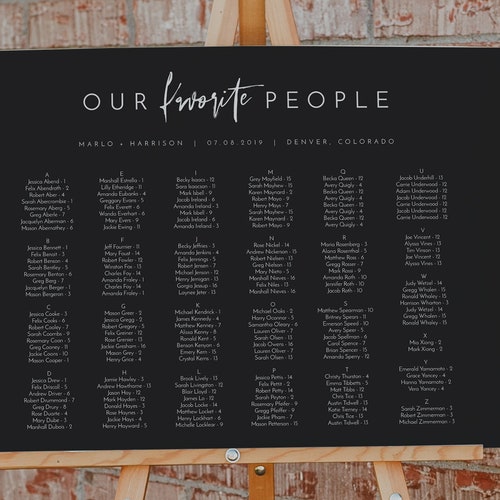 OUR favorite PEOPLE
MARLO + HARRISON | 07.08.2019 | DENVER, COLORADO
A
Jessica Abend - 1
Felix Abendroth - 2
Robert Aber - 4
Sarah Abercrombie - 1
Rosemary Aberg - 5
Greg Aberle - 7
Jacquelyn Aberman - 6
Mason Abernathey - 6
B
Jessica Bennett - 1
Felix Benoit - 3
Robert Benson - 4
Sarah Bentley - 5
Rosemary Benton - 6
Greg Berg - 7
Jacquelyn Berger - 1
Mason Bergeron - 3
C
Jessica Cooke - 3
Felix Cools - 6
Robert Cooley - 7
Sarah Coombs - 9
Rosemary Coon - 3
Greg Cooney - 1
Jackie Coons - 10
Mason Cooper - 1
D
Jessica Drew - 1
Felix Driscoll - 5
Andrew Driver - 6
Robert Drummond - 7
Greg Drury - 8
Rose Duarte - 4
Mary Dube - 3
Marshall Dubois - 2
E
Marshall Estrella - 1
Lilly Etheridge - 11
Amanda Eubanks - 4
Greggory Evans - 5
Felix Everett - 6
Wanda Everhart - 6
Mary Evers - 9
Jackie Ewing - 11
F
Jeff Fournier - 11
Mary Foust - 14
Robert Fowler - 12
Winston Fox - 13
Charles Foy - 14
Amanda Fraley - 1
Charles Foy - 14
Amanda Fraley - 1
G
Mason Greer - 2
Jessica Gregg - 2
Robert Gregory - 5
Felix Greiner - 12
Rose Grenier - 13
Jackie Gresham - 16
Mason Grey - 2
Henry Grice - 4
H
Jamie Hawley - 3
Andrew Hawthorne - 13
Jason Hay - 12
Mark Hayden - 12
Donald Hayes - 3
Rose Haynes - 3
Jackie Hays - 4
Henry Hayward - 5
I
Becky Isaacs - 12
Sara Isaacson - 11
Mark Isbell - 9
Jacob Ireland - 6
Amanda Ireland - 3
Mark Isbell - 9
Jacob Ireland - 6
Amanda Ireland - 3
J
Becky Jeffries - 3
Amanda Jenkins - 4
Felix Jennings - 5
Robert Jensen - 17
Michael Jenson - 12
Henry Jernigan - 13
Giorgia Jessup - 16
Laynee Jeter - 13
K
Michael Kendrick - 1
James Kennedy - 4
Matthew Kenney - 7
Alissa Kenny - 8
Ronald Kent - 5
Benson Kenyon - 12
Emery Kern - 15
Crystal Kerns - 13
L
Brook Lively - 13
Sarah Livingston - 12
Blair Lloyd - 12
James Lo - 12
Jacob Locke - 14
Matthew Locket - 4
Henry Lockhart - 6
Michelle Locklear - 9
M
Grey Mayfield - 15
Sarah Mayhew - 15
Karen Maynard - 2
Robert Mayo - 9
Henry Mays - 7
Sarah Mayhew - 15
Karen Maynard - 2
Robert Mayo - 9
N
Rose Nickel - 14
Andrew Nickerson - 15
Robert Nielsen - 13
Greg Nielson - 11
Mary Nieto - 5
Marshall Nieves - 16
Felix Niles - 13
Marshall Nieves - 16
O
Michael Oaks - 2
Harry Oconnor - 5
Samantha Oleary - 6
Lauren Olsen - 17
Sarah Olson - 12
Jacob Owens - 16
Lauren Olsen - 17
Sarah Olson - 12
P
Jessica Petts - 14
Felix Pettz - 2
Robert Petty - 14
Sarah Paytor - 2
Rosemary Pfeifer - 2
Gregg Pfeiffer - 9
Jackie Pham - 7
Mason Patterson - 15
Q
Becka Queen - 12
Avery Quigly - 4
Becka Queen - 12
Avery Quigly - 4
Becka Queen - 12
Avery Quigly - 4
Becka Queen - 12
Avery Quigly - 4
R
Mario Rosenberg - 3
Alana Rosenthal - 5
Matthew Ross - 6
Gregg Rosser - 7
Mark Rossi - 9
Amanda Roth - 10
Jennifer Roth - 10
Jacob Roth - 10
S
Matthew Spearman - 10
Britney Spears - 1
Emerson Speed - 2
Avery Spees - 2
Jacob Spellman - 6
Carol Spence - 2
Brian Spencer - 15
Amanda Sperry - 12
T
Christy Thurston - 4
Emma Tibbetts - 5
Matt Tibbs - 12
Chris Tice - 13
Austin Tidwell - 13
Katie Tierney - 14
Chris Tice - 13
Austin Tidwell - 13
U
Jacob Underhill - 13
Carrie Underwood - 12
Jacob Underwood - 12
Carrie Underwood - 12
Jacob Underwood - 12
Carrie Underwood - 12
V
Joe Vincent - 12
Alyssa Vines - 13
Tim Vinson - 13
Joe Vincent - 12
Alyssa Vines - 13
W
Judy Wetzel - 14
Gregg Whalen - 15
Ronald Whaley - 15
Harrison Wharton - 3
Judy Wetzel - 14
Gregg Whalen - 15
Ronald Whaley - 15
X
Mia Xiong - 2
Mark Xiong - 2
Y
Emerald Yamamoto - 2
Grace Yancey - 4
Hannah Yamamoto - 2
Vera Yancey - 4
Z
Sarah Zimmerman - 3
Robert Zimmerman - 2
Michael Zimmerman - 3